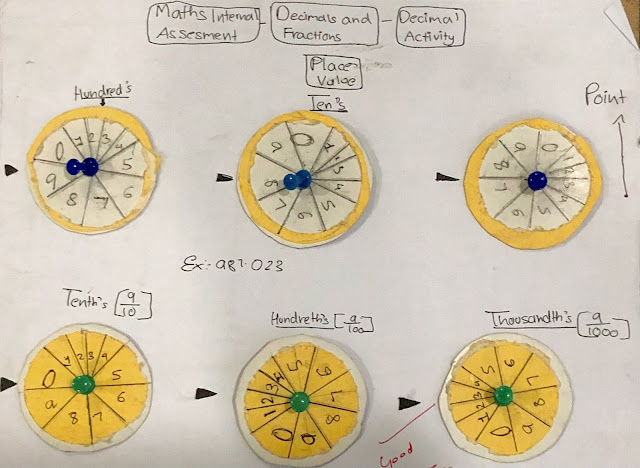 Maths Internal Assesment - Decimals and Fractions - Decimal Activity
Place
Value
Hundred's
Ten's
Point
0 1 2 3 4 5 6 7 8 9
0 1 2 3 4 5 6 7 8 9
0 1 2 3 4 5 6 7 8 9
Ex:- 987.023
Tenth's [9/10]
Hundreth's [9/100]
Thousandth's [9/1000]
0 1 2 3 4 5 6 7 8 9
0 1 2 3 4 5 6 7 8 9
0 1 2 3 4 5 6 7 8 9
Good